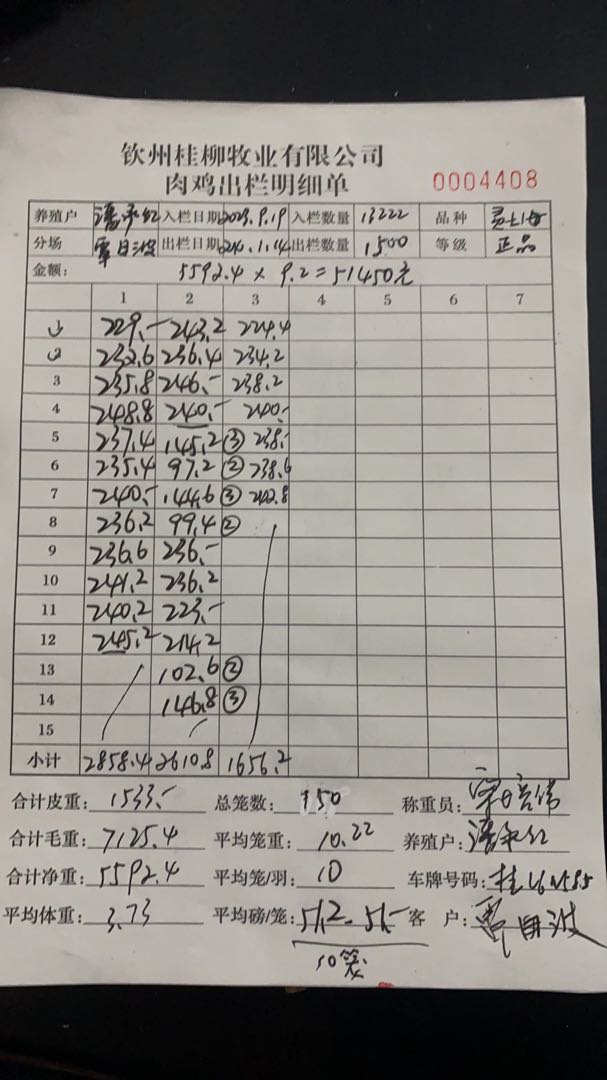 钦州桂柳牧业有限公司
肉鸡出栏明细单
0004408
养殖户 入栏日期 2023.9.19 入栏数量 13222 品种
分场 覃日波 出栏日期 出栏数量 1500 等级 正品
金额: 5592.4 × 9.2 = 51450元
1 2 3 4 5 6 7
1 229.- 243.2 224.4
2 232.6 236.4 234.2
3 235.8 246.- 238.2
4 248.8 240.- 240.-
5 237.4 145.2 ③ 238.-
6 235.4 97.2 ② 238.6
7 240.- 144.6 ③ 242.8
8 236.2 99.4 ②
9 236.6 236.-
10 241.2 236.2
11 240.2 223.-
12 245.2 214.2
13 102.6 ②
14 146.8 ③
15
小计 2858.4 2610.8 1656.2
合计皮重: 1533.- 总笼数: 150 称重员:
合计毛重: 7125.4 平均笼重: 10.22 养殖户:
合计净重: 5592.4 平均笼/羽: 10 车牌号码:
平均体重: 3.73 平均磅/笼: 51.2 - 51.- 客 户:
10笼